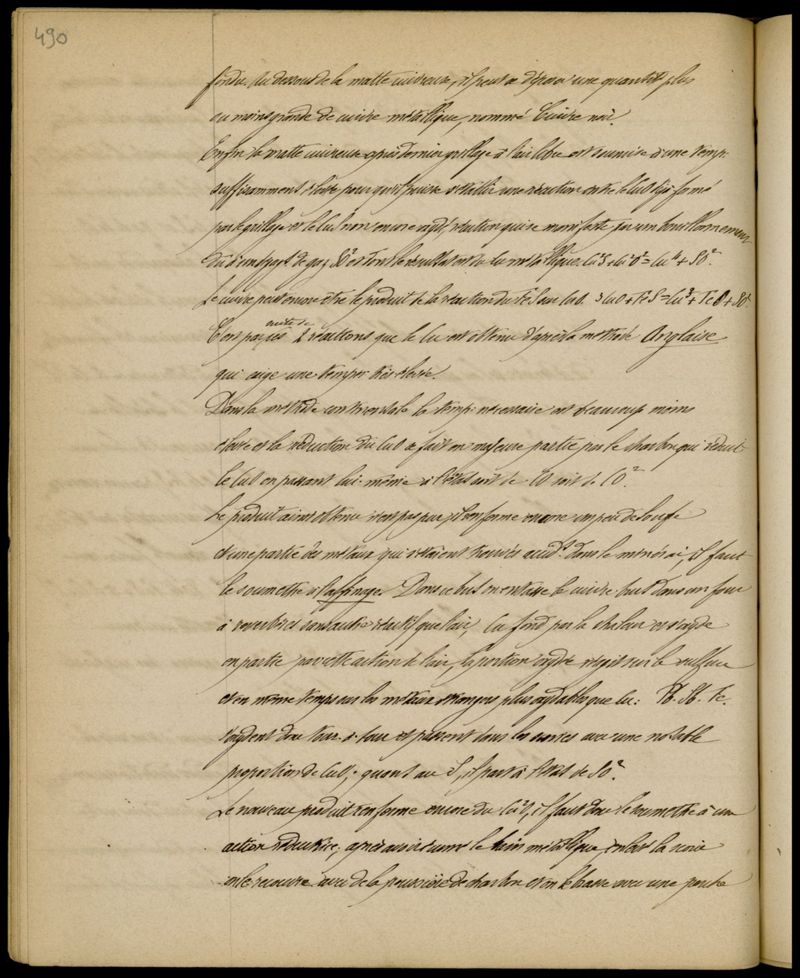 490
fondue au dessous de la matte cuivreuse, il peut se déposer une quantité plus
ou moins grande de cuivre métallique, nommé Cuivre noir.
Enfin la matte cuivreuse après dernier grillage à l'air libre est soumise à une temp.
suffisamment élevée pour qu'il puisse s'établir une réaction entre le CuO déjà formé
par le grillage et le CuS non encore oxydé, réaction qui se manifeste par un bouillonnement
du d'un dégagt de gaz SO² et dont le résultat est du Cu métallique. Cu²S + Cu²O² = Cu⁴ + SO².
Le cuivre peut encore être le produit de la réaction du FeS sur CuO. 3CuO + FeS = Cu³ + FeO + SO²
C'est par ces 2 réactions que le Cu est obtenu d'après la méthode Anglaise
qui exige une temper. très élevée.
Dans la méthode continentale la temp. nécessaire est beaucoup moins
élevée et la réduction du CuO se fait en majeure partie par le charbon qui réduit
le CuO en passant lui-même à l'état soit de CO soit de CO².
Le produit ainsi obtenu n'est pas pur, il renferme encore un peu de soufre
et une partie des métaux qui s'étaient trouvés dans le minerai, il faut
le soumettre à l'affinage. Dans ce but on entasse le cuivre brut dans un four
à réverbère sans autre réactif que l'air, Cu fond par la chaleur et s'oxyde
en partie par cette action de l'air, la portion oxydée réagit sur le sulfure
et en même temps sur les métaux étrangers plus oxydables que Cu: Pb. Sb. Fe.
s'oxydent tour à tour et passent dans les scories avec une notable
proportion de CuO; quant au S, il part à l'état de SO².
Le nouveau produit renferme encore du Cu²O, il faut donc le soumettre à une
action réductrice, après avoir le bain métallique, enlevé la scorie
on le recouvre avec de la poussière de charbon et on le brasse avec une perche